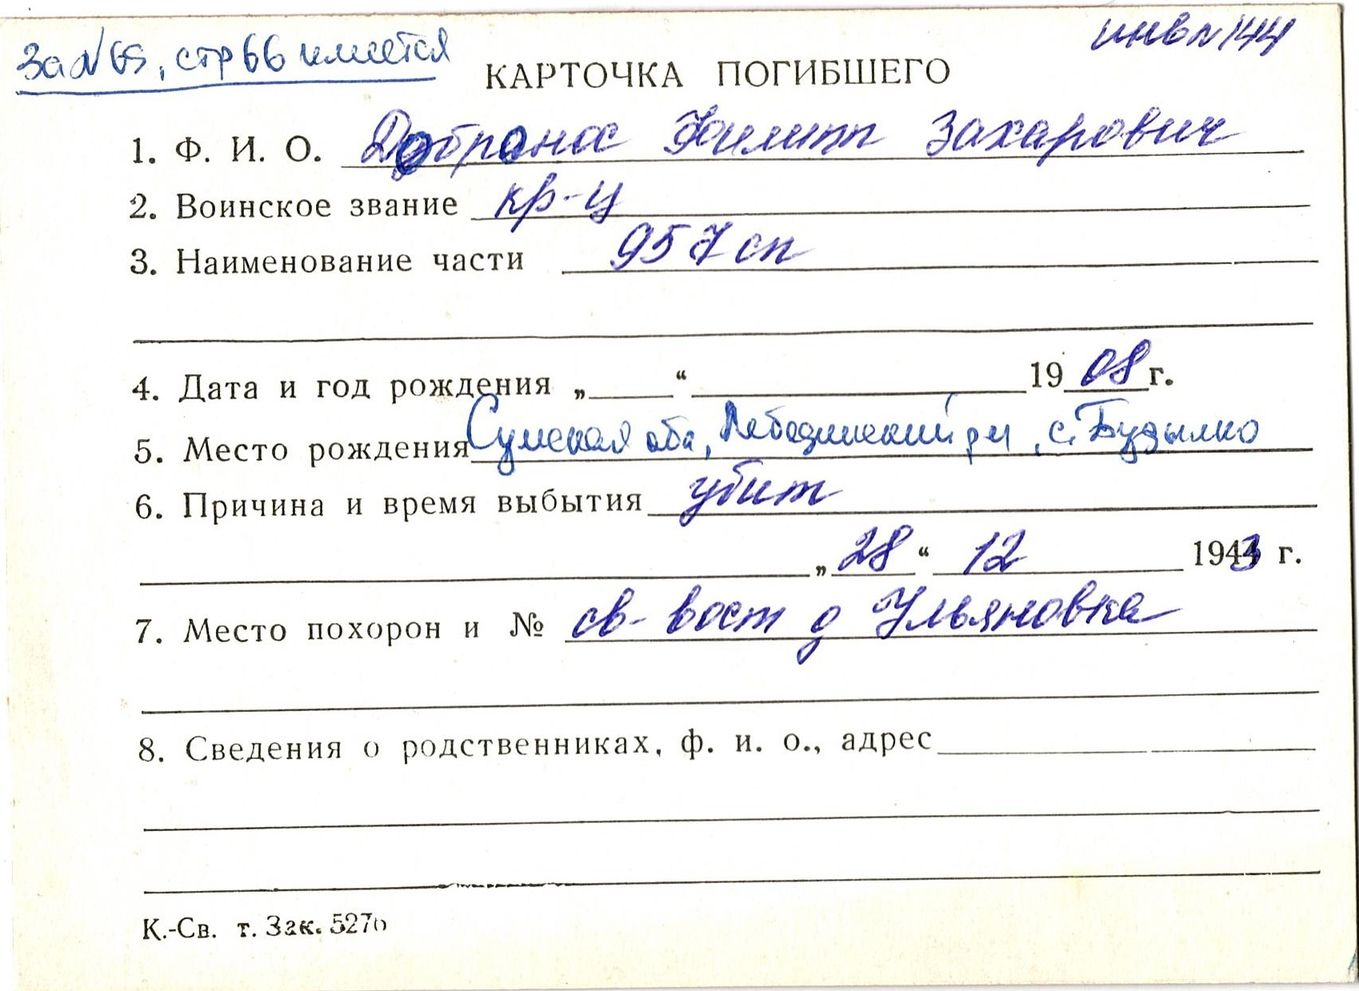 За № 65, стр 66 имеется
инв № 144
КАРТОЧКА ПОГИБШЕГО
1. Ф. И. О. Добранос Филипп Захарович
2. Воинское звание кр-ц
3. Наименование части 957 сп
4. Дата и год рождения „ “ 1908 г.
5. Место рождения Сумская обл, Лебединский р-н, с. Будылко
6. Причина и время выбытия убит
„28“ 12 1943 г.
7. Место похорон и № св-вост д Ульяновка
8. Сведения о родственниках, ф. и. о., адрес
К.-Св. т. Зак. 5276